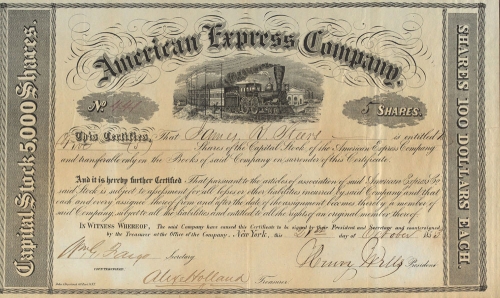 American Express Company.
Capital Stock 5,000 Shares.
SHARES 100 DOLLARS EACH.
No.
5 SHARES.
This Certifies, That James is entitled to
Shares of the Capital Stock of the American Express Company
and transferable only on the Books of said Company on surrender of this Certificate.
And it is hereby further Certified That pursuant to the articles of association of said American Express Co
said Stock is subject to assessment for all losses or other liabilities incurred by said Company and that
each and every assignee thereof from and after the date of the assignment becomes thereby a member of
said Company, subject to all the liabilities and entitled to all the rights of an original member thereof.
IN WITNESS WHEREOF, The said Company have caused this Certificate to be signed by their President and Secretary and countersigned
by the Treasurer at the Office of the Company, New York, this day of October 185
Wm G. Fargo Secretary
Henry Wells President
COUNTERSIGNED
Alex Holland Treasurer